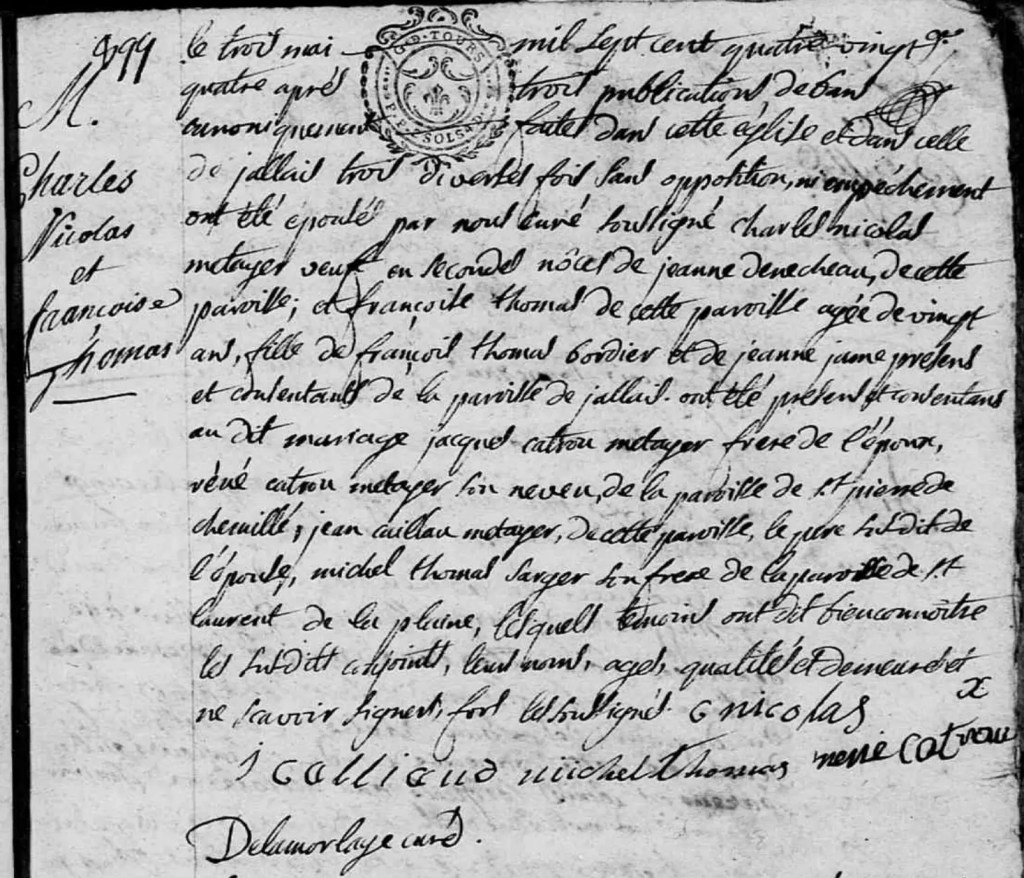 M.
Charles
Nicolas
et
françoise
Thomas
G. D. TOURS
P. P. 2 SOLS 4 D.
le trois mai mil sept cent quatre vingt
quatre aprés trois publications de ban
canoniquement faites dans cette église et dans celle
de jallais trois diverses fois sans opposition, ni empéchement
ont été epousés par nous curé soussigné charles nicolas
metayer veuf en secondes nôces de jeanne denecheau, de cette
paroisse; et françoise thomas de cette paroisse agée de vingt
ans, fille de françois thomas bordier et de jeanne jame presens
et consentants de la paroisse de jallais. ont été presens et consentans
au dit mariage jacques catrou metayer frere de l'époux,
réné catrou metayer son neveu, de la paroisse de s.t pierre de
chemillé; jean caillau metayer, de cette paroisse, le pere susdit de
l'épouse, michel thomas sarger son frere de la paroisse de s.t
laurent de la plaine, lesquels temoins ont dit bien connoitre
les susdits conjoints, leurs noms, ages, qualités et demeures et
ne scavoir signer, fors les soussignés c nicolas
J calliaud michel thomas rene catrou
Delamorlaye curé.